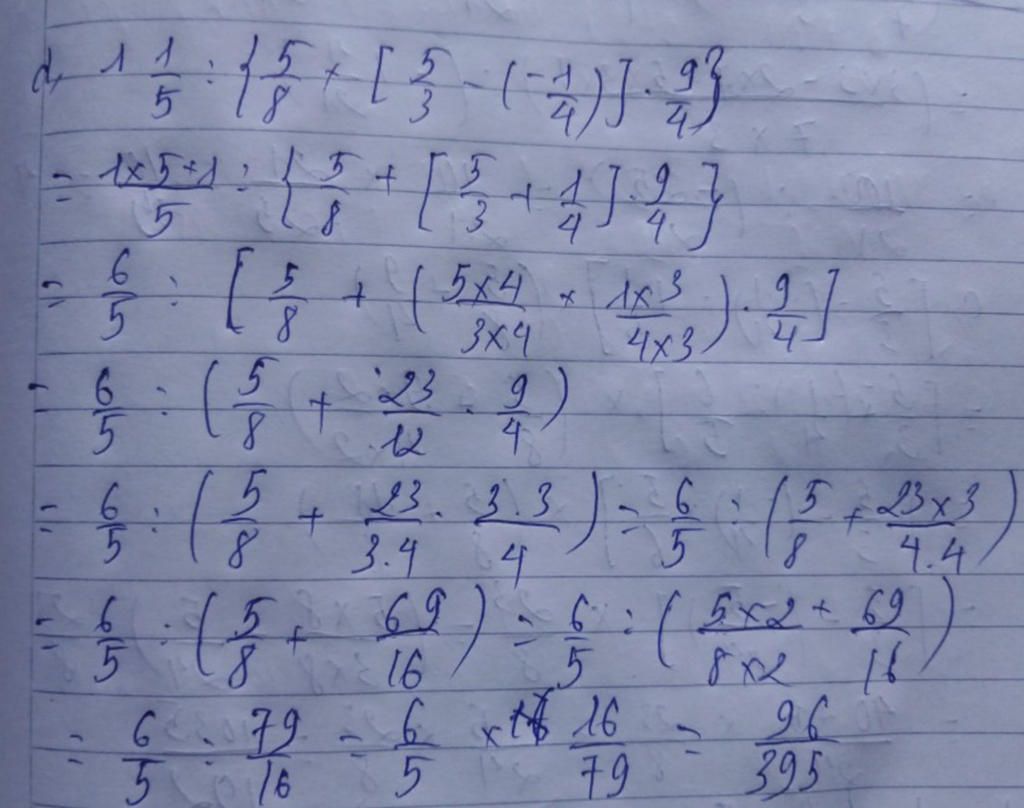 d, 1 1/5 : {5/8 + [5/3 - (-1/4)] . 9/4}
= 1x5+1/5 : {5/8 + [5/3 + 1/4] . 9/4}
= 6/5 : [5/8 + (5x4/3x4 + 1x3/4x3) . 9/4]
= 6/5 : (5/8 + 23/12 . 9/4)
= 6/5 : (5/8 + 23/3.4 . 3.3/4) = 6/5 : (5/8 + 23x3/4.4)
= 6/5 : (5/8 + 69/16) = 6/5 : (5x2/8x2 + 69/16)
= 6/5 : 79/16 = 6/5 x 16/79 = 96/395